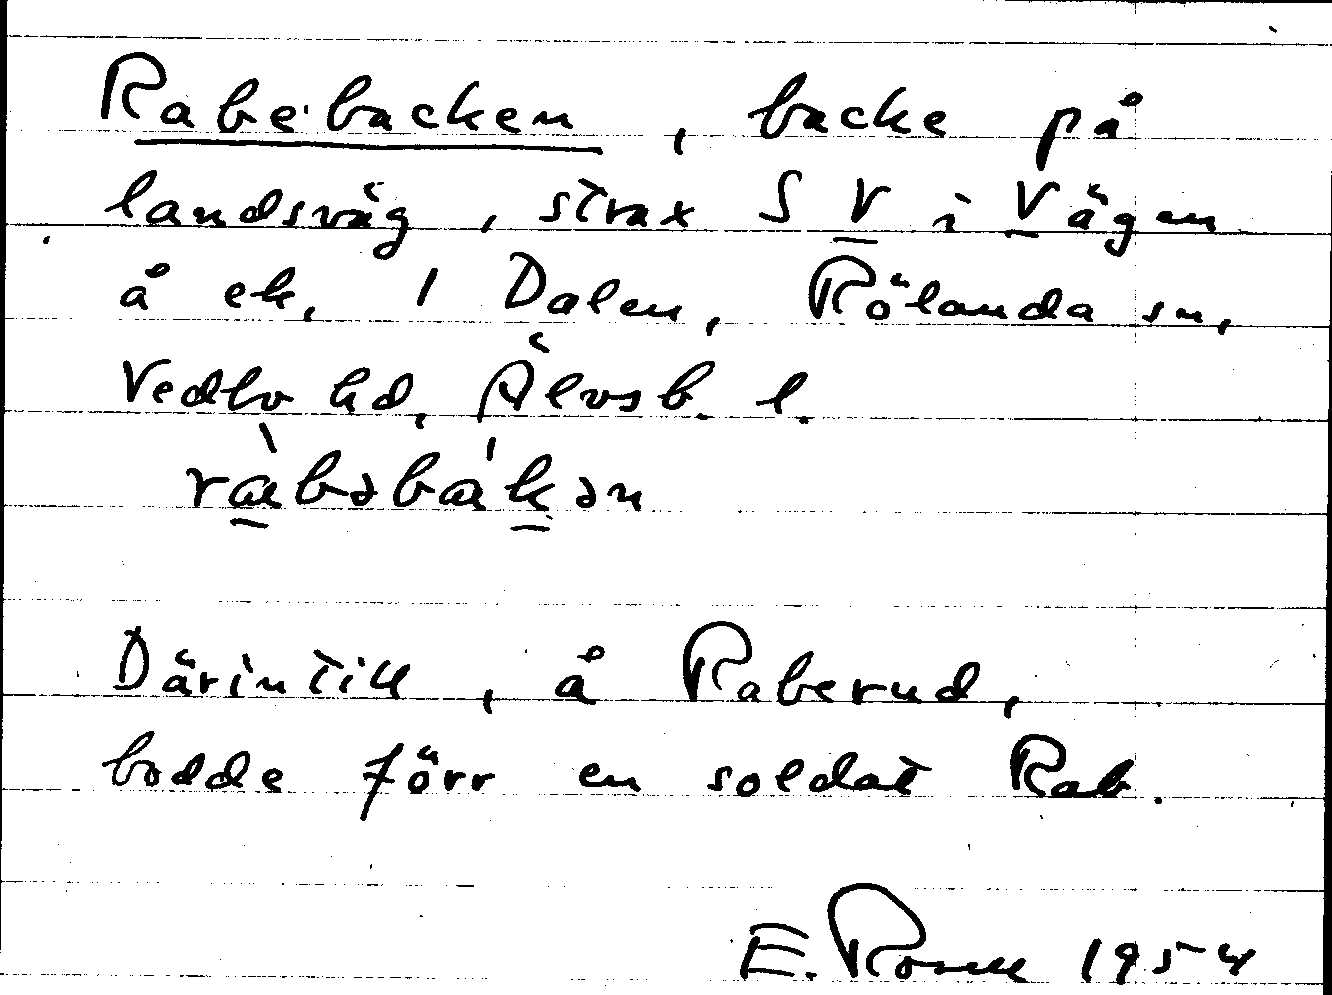 Rabebacken, backe på
landsväg, strax S V i Vägen
å ek. 1 Dalen, Rölanda sn,
Vedbo hd, Älvsb. l.
ràbəbákən
Därintill, å Raberud,
bodde förr en soldat Rab.
E. 1954